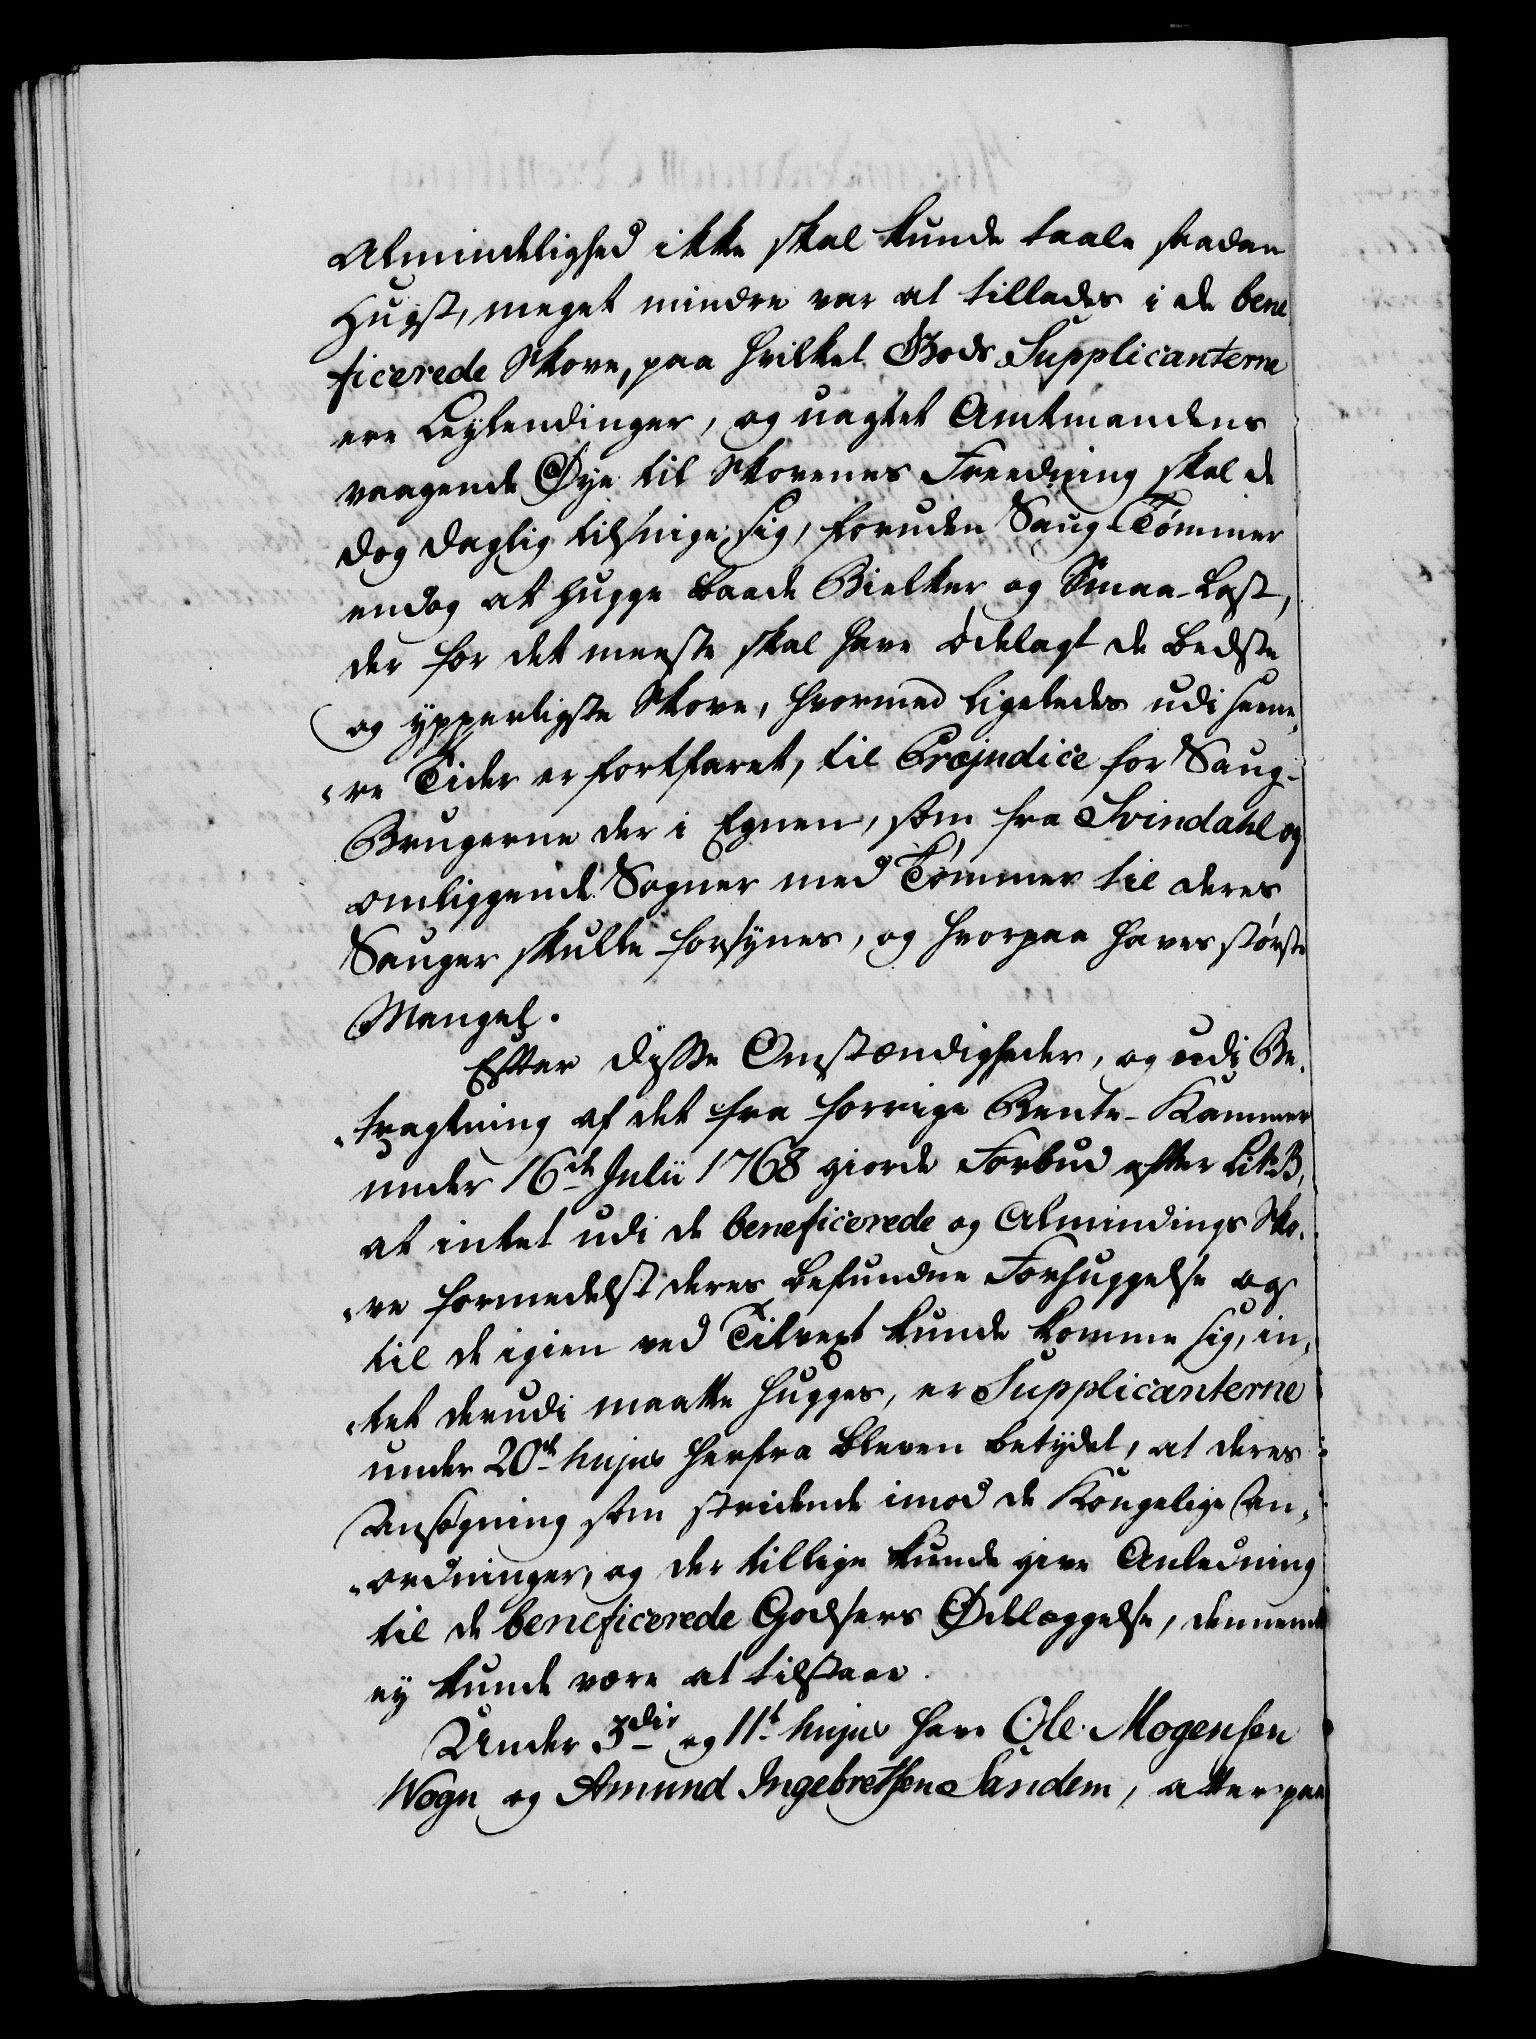 Almindelighed ikke skal kunde taale saadan
Hugst, meget mindre var at tillades i de bene
ficerede Skove, paa hvilket Gods Supplicanterne
ere Leylendinger, og uagtet Amtmandens
vaagende Øye til Skovenes Freedning skal de
dog daglig tilsnige sig, foruden Saug-Tømmer
endog at hugge baade Bielker og Smaa-Last,
der for det meeste skal have ødelagt de bedste
og ypperligste Skove, hvormed ligeledes udi seene,
"re Tider er fortfaret, til Præjudice for Saug-
Brugerne der i Egnen, som fra Svindahl og
omliggende Sogner med Tømmer til deres
Sauger skulle forsynes, og hvorpaa haves største
Mangel.
Efter disse Omstændigheder, og udi Be,
"tragtning af det fra forrige Rente-Kammer
under 16de Julii 1768 giorde Forbud efter Lit. B,
at intet udi de beneficerede og Almindings Sko,
"ve formedelst deres befundne Forhuggelse og
til de igien ved Tilvext kunde komme sig, in,
"tet derudi maatte hugges, er Supplicanterne
under 20de hujus herfra bleven betydet, at deres
Ansøgning som stridende imod de Kongelige An,
"ordninger, og der tillige kunde give Anledning
til de beneficerede Godsers Ødelæggelse, dennem
ey kunde være at tilstaae.
Under 3die og 11te hujus have Ole Mogensen
Wogn og Amund Ingebretsen Sandem, atter paa